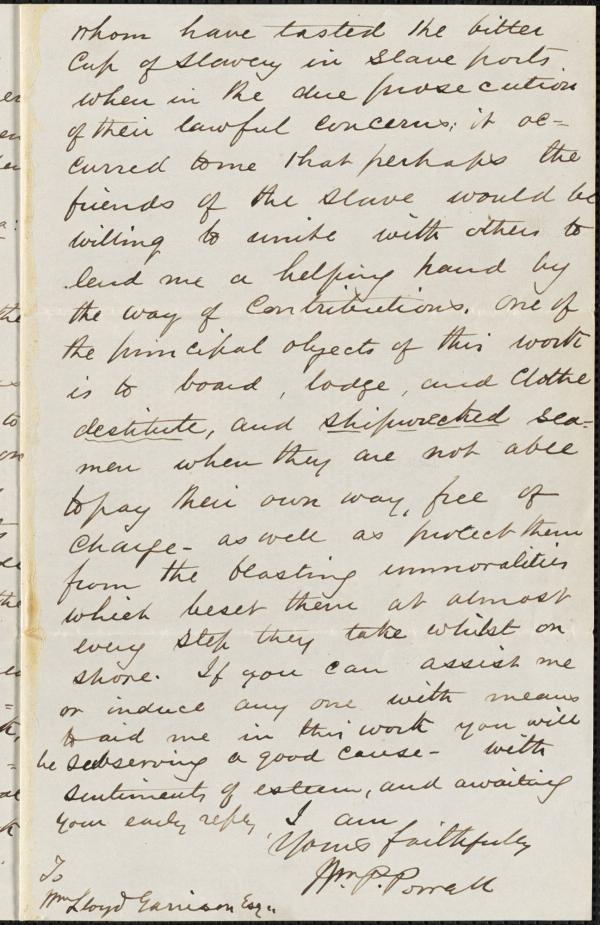 whom have tasted the bitter
Cup of Slavery in Slave ports
when in the due prosecution
of their lawful concerns; it oc=
curred to me that perhaps the
friends of the slave would be
willing to unite with others to
lend me a helping hand by
the way of Contributions. One of
the principal objects of this work
is to board, lodge, and Clothe
destitute, and shipwrecked sea-
men when they are not able
to pay their own way, free of
Charge - as well as protect them
from the blasting immoralities
which beset them at almost
every step they take whilst on
shore. If you can assist me
or induce any one with means
to aid me in this work you will
be subserving a good cause - with
sentiments of esteem, and awaiting
your early reply, I am
Yours faithfully
Wm. P. Powell
To
Wm Lloyd Garrison Esq.